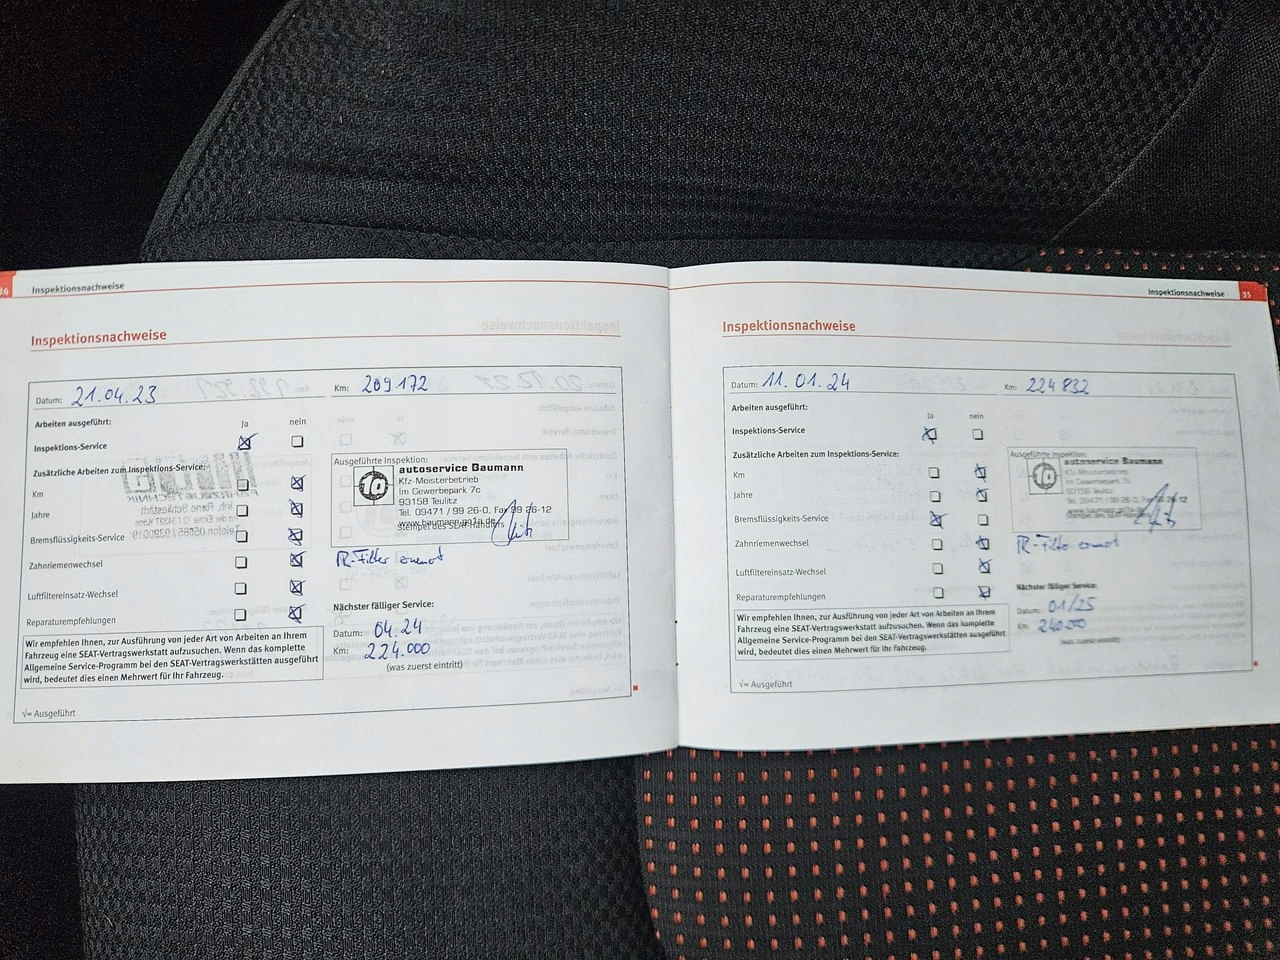 34 Inspektionsnachweise
Inspektionsnachweise
Datum: 21.04.23 Km: 209172
Arbeiten ausgeführt:
Ja nein
Inspektions-Service
Zusätzliche Arbeiten zum Inspektions-Service:
Km
Jahre
Bremsflüssigkeits-Service
Zahnriemenwechsel
Luftfiltereinsatz-Wechsel
Reparaturempfehlungen
Wir empfehlen Ihnen, zur Ausführung von jeder Art von Arbeiten an Ihrem
Fahrzeug eine SEAT-Vertragswerkstatt aufzusuchen. Wenn das komplette
Allgemeine Service-Programm bei den SEAT-Vertragswerkstätten ausgeführt
wird, bedeutet dies einen Mehrwert für Ihr Fahrzeug.
√= Ausgeführt
Ausgeführte Inspektion:
autoservice Baumann
Kfz-Meisterbetrieb
Im Gewerbepark 7c
93158 Teublitz
Tel. 09471 / 99 26-0, Fax 99 26-12
Stempel des SEAT-Händlers
PR-Filter erneuert
Nächster fälliger Service:
Datum: 04.24
Km: 224.000
(was zuerst eintritt)
Inspektionsnachweise 35
Inspektionsnachweise
Datum: 11.01.24 Km: 224832
Arbeiten ausgeführt:
Ja nein
Inspektions-Service
Zusätzliche Arbeiten zum Inspektions-Service:
Km
Jahre
Bremsflüssigkeits-Service
Zahnriemenwechsel
Luftfiltereinsatz-Wechsel
Reparaturempfehlungen
Wir empfehlen Ihnen, zur Ausführung von jeder Art von Arbeiten an Ihrem
Fahrzeug eine SEAT-Vertragswerkstatt aufzusuchen. Wenn das komplette
Allgemeine Service-Programm bei den SEAT-Vertragswerkstätten ausgeführt
wird, bedeutet dies einen Mehrwert für Ihr Fahrzeug.
√= Ausgeführt
Ausgeführte Inspektion:
autoservice Baumann
Kfz-Meisterbetrieb
Im Gewerbepark 7c
93158 Teublitz
Tel. 09471 / 99 26-0, Fax 99 26-12
PR-Filter erneuert
Nächster fälliger Service:
Datum: 01/25
Km: 240.000
(was zuerst eintritt)